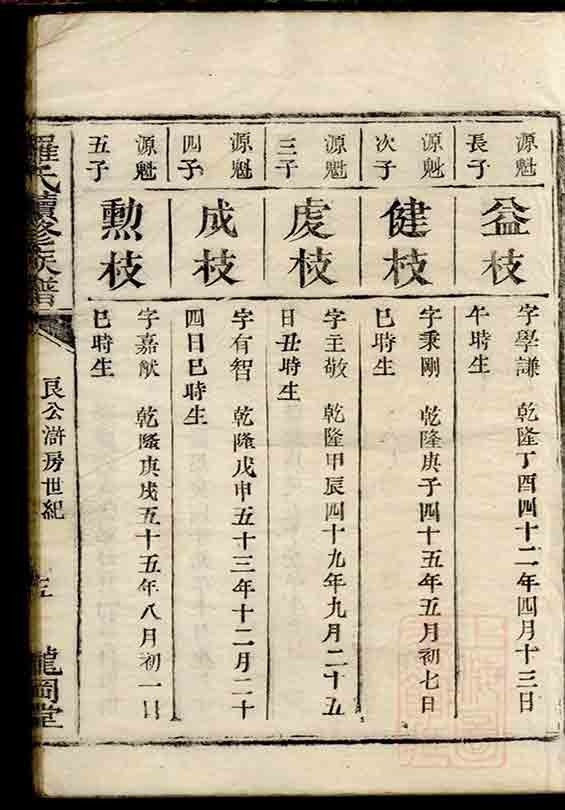 源魁
長子
益枝
字學謙 乾隆丁酉四十二年四月十三日
午時生
源魁
次子
健枝
字秉剛 乾隆庚子四十五年五月初七日
巳時生
源魁
三子
虔枝
字主敬 乾隆甲辰四十九年九月二十五
日丑時生
源魁
四子
成枝
字有智 乾隆戊申五十三年十二月二十
四日巳時生
源魁
五子
勲枝
字嘉猷 乾隆庚戌五十五年八月初一日
巳時生
羅氏續修族譜
良公滸房世紀
龍岡堂